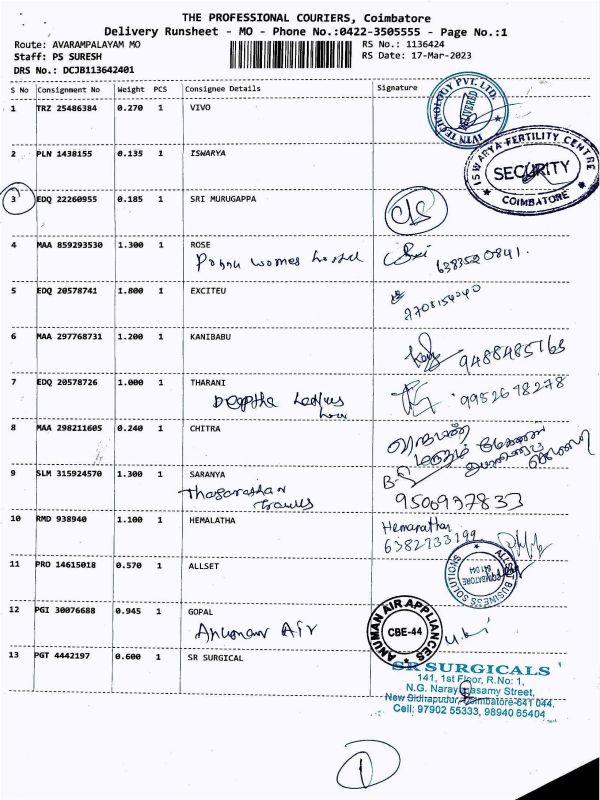 THE PROFESSIONAL COURIERS, Coimbatore
Delivery Runsheet - MO - Phone No.:0422-3505555 - Page No.:1
Route: AVARAMPALAYAM MO
RS No.: 1136424
Staff: PS SURESH
RS Date: 17-Mar-2023
DRS No.: DCJB113642401
S No Consignment No Weight PCS Consignee Details Signature
1 TRZ 25486384 0.270 1 VIVO
TECHNOLOGY PVT. LTD.
DELIVERED
2 PLN 1438155 0.135 1 ISWARYA
ISWARYA FERTILITY CENTRE
SECURITY
COIMBATORE
3 EDQ 22260955 0.185 1 SRI MURUGAPPA
4 MAA 859293530 1.300 1 ROSE
womes
6383520841.
5 EDQ 20578741 1.800 1 EXCITEU
2708154040
6 MAA 297768731 1.200 1 KANIBABU
9488485765
7 EDQ 20578726 1.000 1 THARANI
9952678278
8 MAA 298211605 0.240 1 CHITRA
9 SLM 315924570 1.300 1 SARANYA
9500937833
10 RMD 938940 1.100 1 HEMALATHA
6382733199
11 PRO 14615018 0.570 1 ALLSET
BUSINESS SOLUTIONS
COIMBATORE
641 044
12 PGI 30076688 0.945 1 GOPAL
Anuman Air
ANUMAN AIR APPLIANCES
CBE-44
13 PGT 4442197 0.600 1 SR SURGICAL
SR SURGICALS
141, 1st Floor, R.No: 1,
N.G. Narayanasamy Street,
New Sidhapudur, Coimbatore-641 044.
Cell: 97902 55333, 98940 65404
1